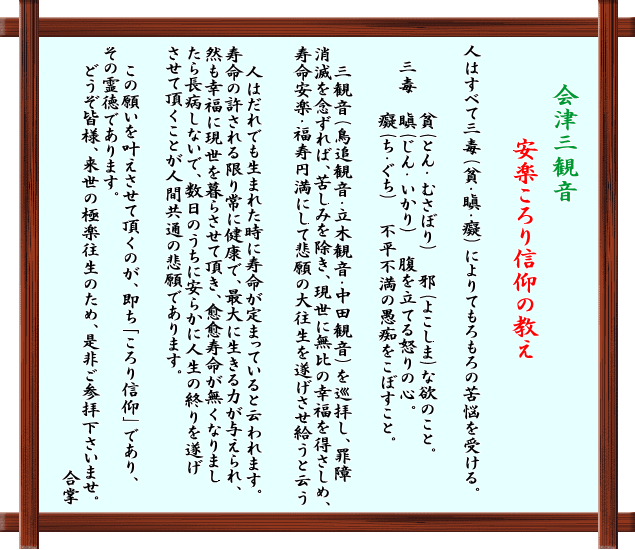 会津三観音
安楽ころり信仰の教え
人はすべて三毒(貪・瞋・癡)によりてもろもろの苦悩を受ける。
三毒　貪(とん・むさぼり)　邪(よこしま)な欲のこと。
瞋(じん・いかり)　腹を立てる怒りの心。
癡(ち・ぐち)　不平不満の愚痴をこぼすこと。
三観音(鳥追観音・立木観音・中田観音)を巡拝し、罪障
消滅を念ずれば、苦しみを除き、現世に無比の幸福を得さしめ、
寿命安楽・福寿円満にして悲願の大往生を遂げさせ給うと云う
人はだれでも生まれた時に寿命が定まっていると云われます。
寿命の許される限り常に健康で、最大に生きる力が与えられ、
然も幸福に現世を暮らさせて頂き、愈愈寿命が無くなりまし
たら長病しないで、数日のうちに安らかに人生の終りを遂げ
させて頂くことが人間共通の悲願であります。
この願いを叶えさせて頂くのが、即ち「ころり信仰」であり、
その霊徳であります。
どうぞ皆様、来世の極楽往生のため、是非ご参拝下さいませ。
合掌